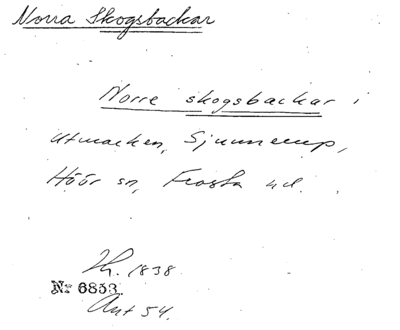 Norra Skogsbackar
Norre skogsbackar i
utmarken, Sjunnerup,
Höör sn, Frosta hd.
Lh. 1838
No 6853
Akt 54.